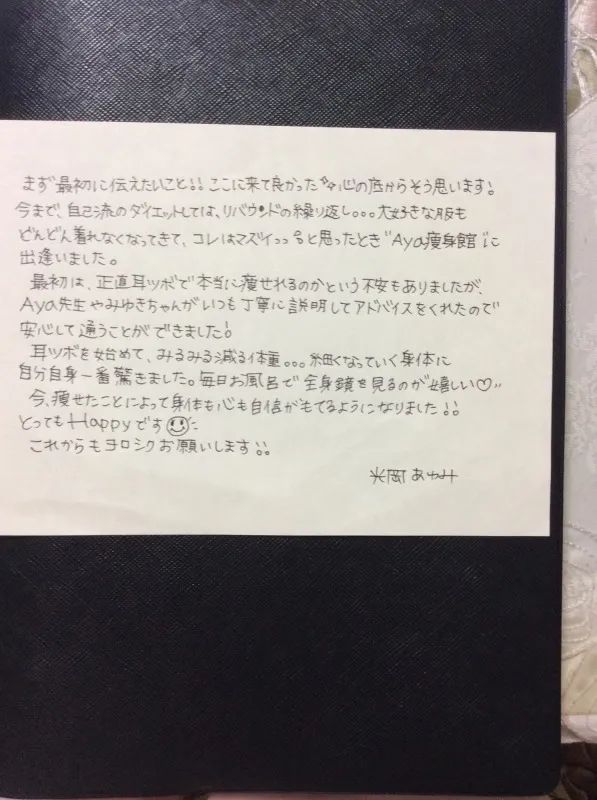 まず最初に伝えたいこと!! ここに来て良かった 心の底からそう思います!
今まで、自己流のダイエットしては、リバウンドの繰り返し。。。大好きな服も
どんどん着れなくなってきて、コレはマズイっっ。と思ったとき"Aya痩身館"に
出逢いました。
最初は、正直耳ツボで本当に痩せれるのかという不安もありましたが、
Aya先生やみゆきちゃんがいつも丁寧に説明してアドバイスをくれたので
安心して通うことができました!
耳ツボを始めて、みるみる減る体重。。。細くなっていく身体に
自分自身一番驚きました。毎日お風呂で全身鏡を見るのが嬉しい♡"
今、痩せたことによって身体も心も自信がもてるようになりました!!
とってもHappyです☺
これからもヨロシクお願いします!!
光岡 あゆみ